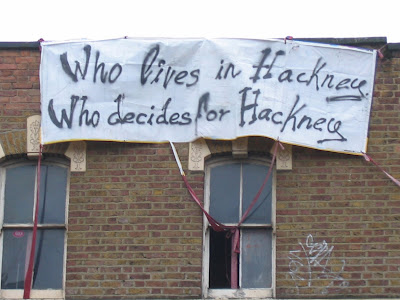 Who lives in Hackney
Who decides for Hackney